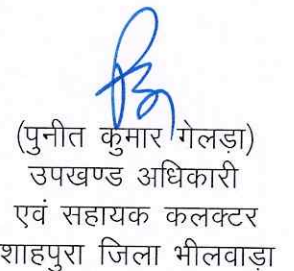 (पुनीत कुमार गेलड़ा)
उपखण्ड अधिकारी
एवं सहायक कलक्टर
शाहपुरा जिला भीलवाडा